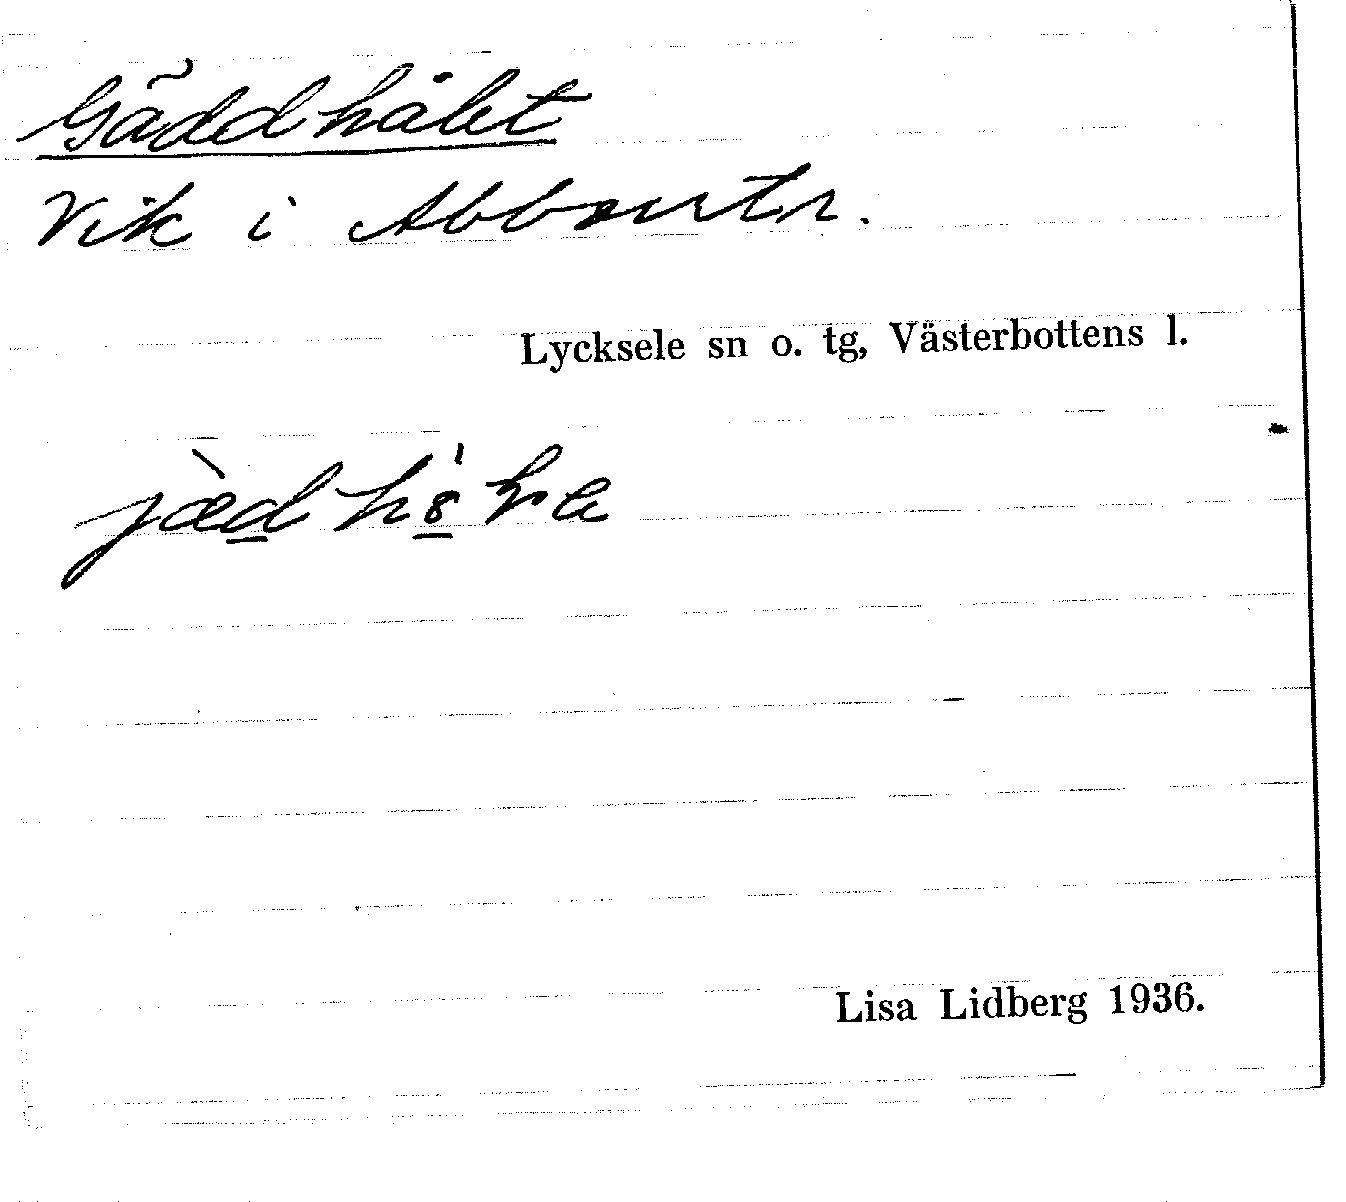 Gäddhålet
Vik i Abborrtr.
Lycksele sn o. tg, Västerbottens l.
Lisa Lidberg 1936.